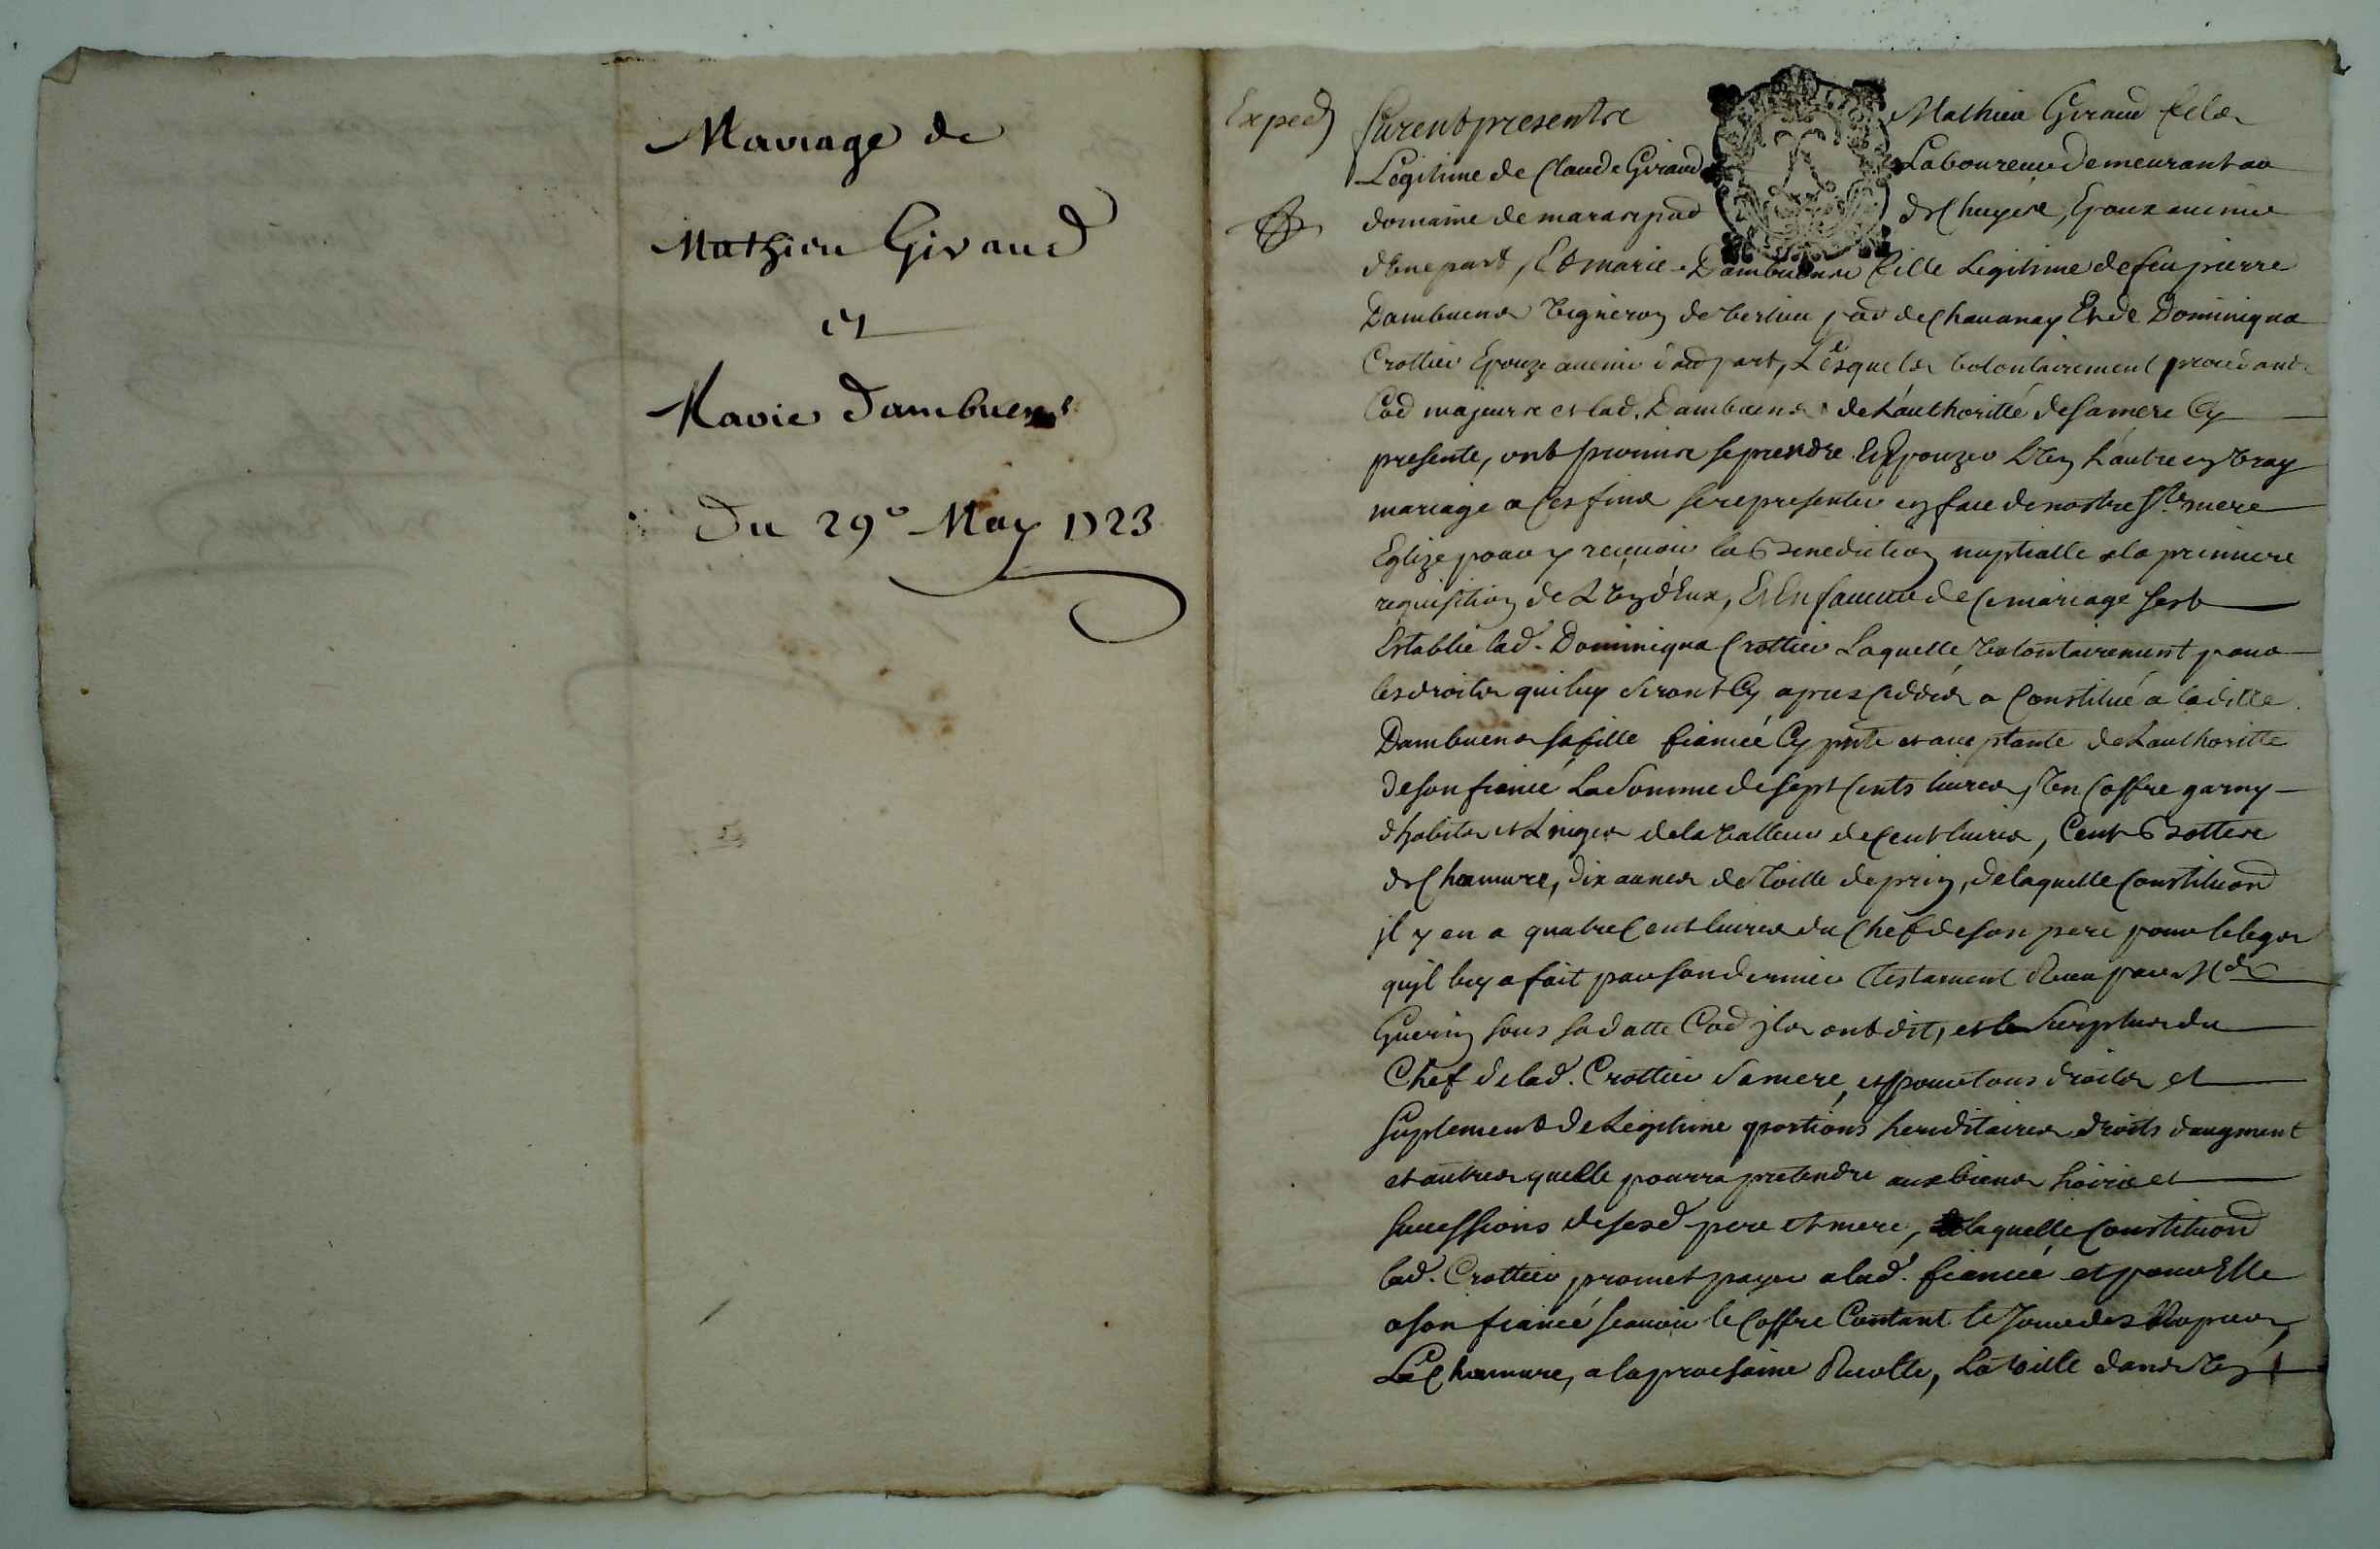 Mariage de
Mathieu Giraud
et
Marie Dambuens
Du 29e May 1723
Exped
furent presents Mathieu Giraud fils
Legitime de Claude Giraud Laboureur demeurant au
domaine de parr de Chuyes, Epoux avenir
d'une part, Et marie Dambuens fille Legitime de feu pierre
Dambuens vigneron de verlieu parr de Chavanay Et de Dominique
Crottier Epouze avenir d'aud part, Lesquels volontairement procedants
Led majeur et lad. Dambuens de L'authoritté de sa mere Cy
presente, ont promis se prendre Et Epouzer L'un L'autre en vray
mariage a Ces fins se representer en face de nostre Ste mere
Eglize pour y recevoir la Benediction nuptialle a la premiere
requisition de L'un d'Eux, Et En faveur de Ce mariage s'est
Establie lad. Dominique Crottier Laquelle volontairement pour
les droits qui luy seront Cy apres Ceddés a Constitué a laditte
Dambuens sa fille fiancée Cy pnte et acceptante de Lauthoritté
de son fiancé La Somme de sept Cents livres, Un Coffre garny
d'habits et Linges de la valleur de Cent livres, Cent Bottes
de Chamure, dix aunes de Toille de prin, de laquelle Constituon
il y en a quatre Cent livres du Chef de son pere pour le legs
qu'il luy a fait par son dernier Testament Receu par Me
Guerin sous sa datte Co'd ils ont dit, et le Surplus du
Chef de lad. Crottier sa mere, et pour tous droits et
Suplement de Legitime portions hereditaires droits d'augment
et autres quelle pourra pretendre aux biens hoirie et
successions de sesd pere et mere, laquelle Constituon
lad. Crottier promet payer a lad. fiancée et pour Elle
a son fiancé scavoir le Coffre Contant le Jour des Nopces,
La Chamure, a la prochaine Recolte, La toille dans un